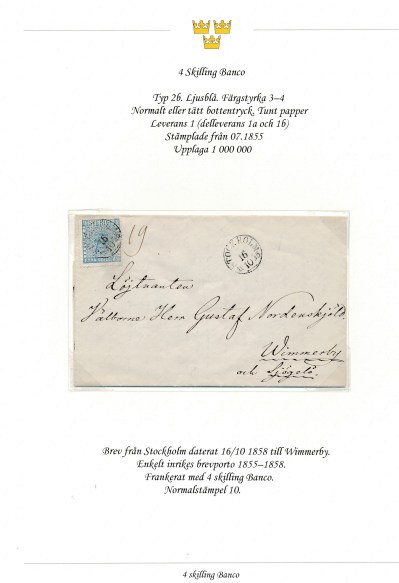 4 Skilling Banco
Typ 2b. Ljusblå. Färgstyrka 3–4
Normalt eller tätt bottentryck. Tunt papper
Leverans 1 (delleverans 1a och 1b)
Stämplade från 07.1855
Upplaga 1 000 000
19
STOCKHOLM
16
10
Löjtnanten
Välborne Herr Gustaf Nordenskjöld.
Wimmerby
och
Brev från Stockholm daterat 16/10 1858 till Wimmerby.
Enkelt inrikes brevporto 1855–1858.
Frankerat med 4 skilling Banco.
Normalstämpel 10.
4 skilling Banco